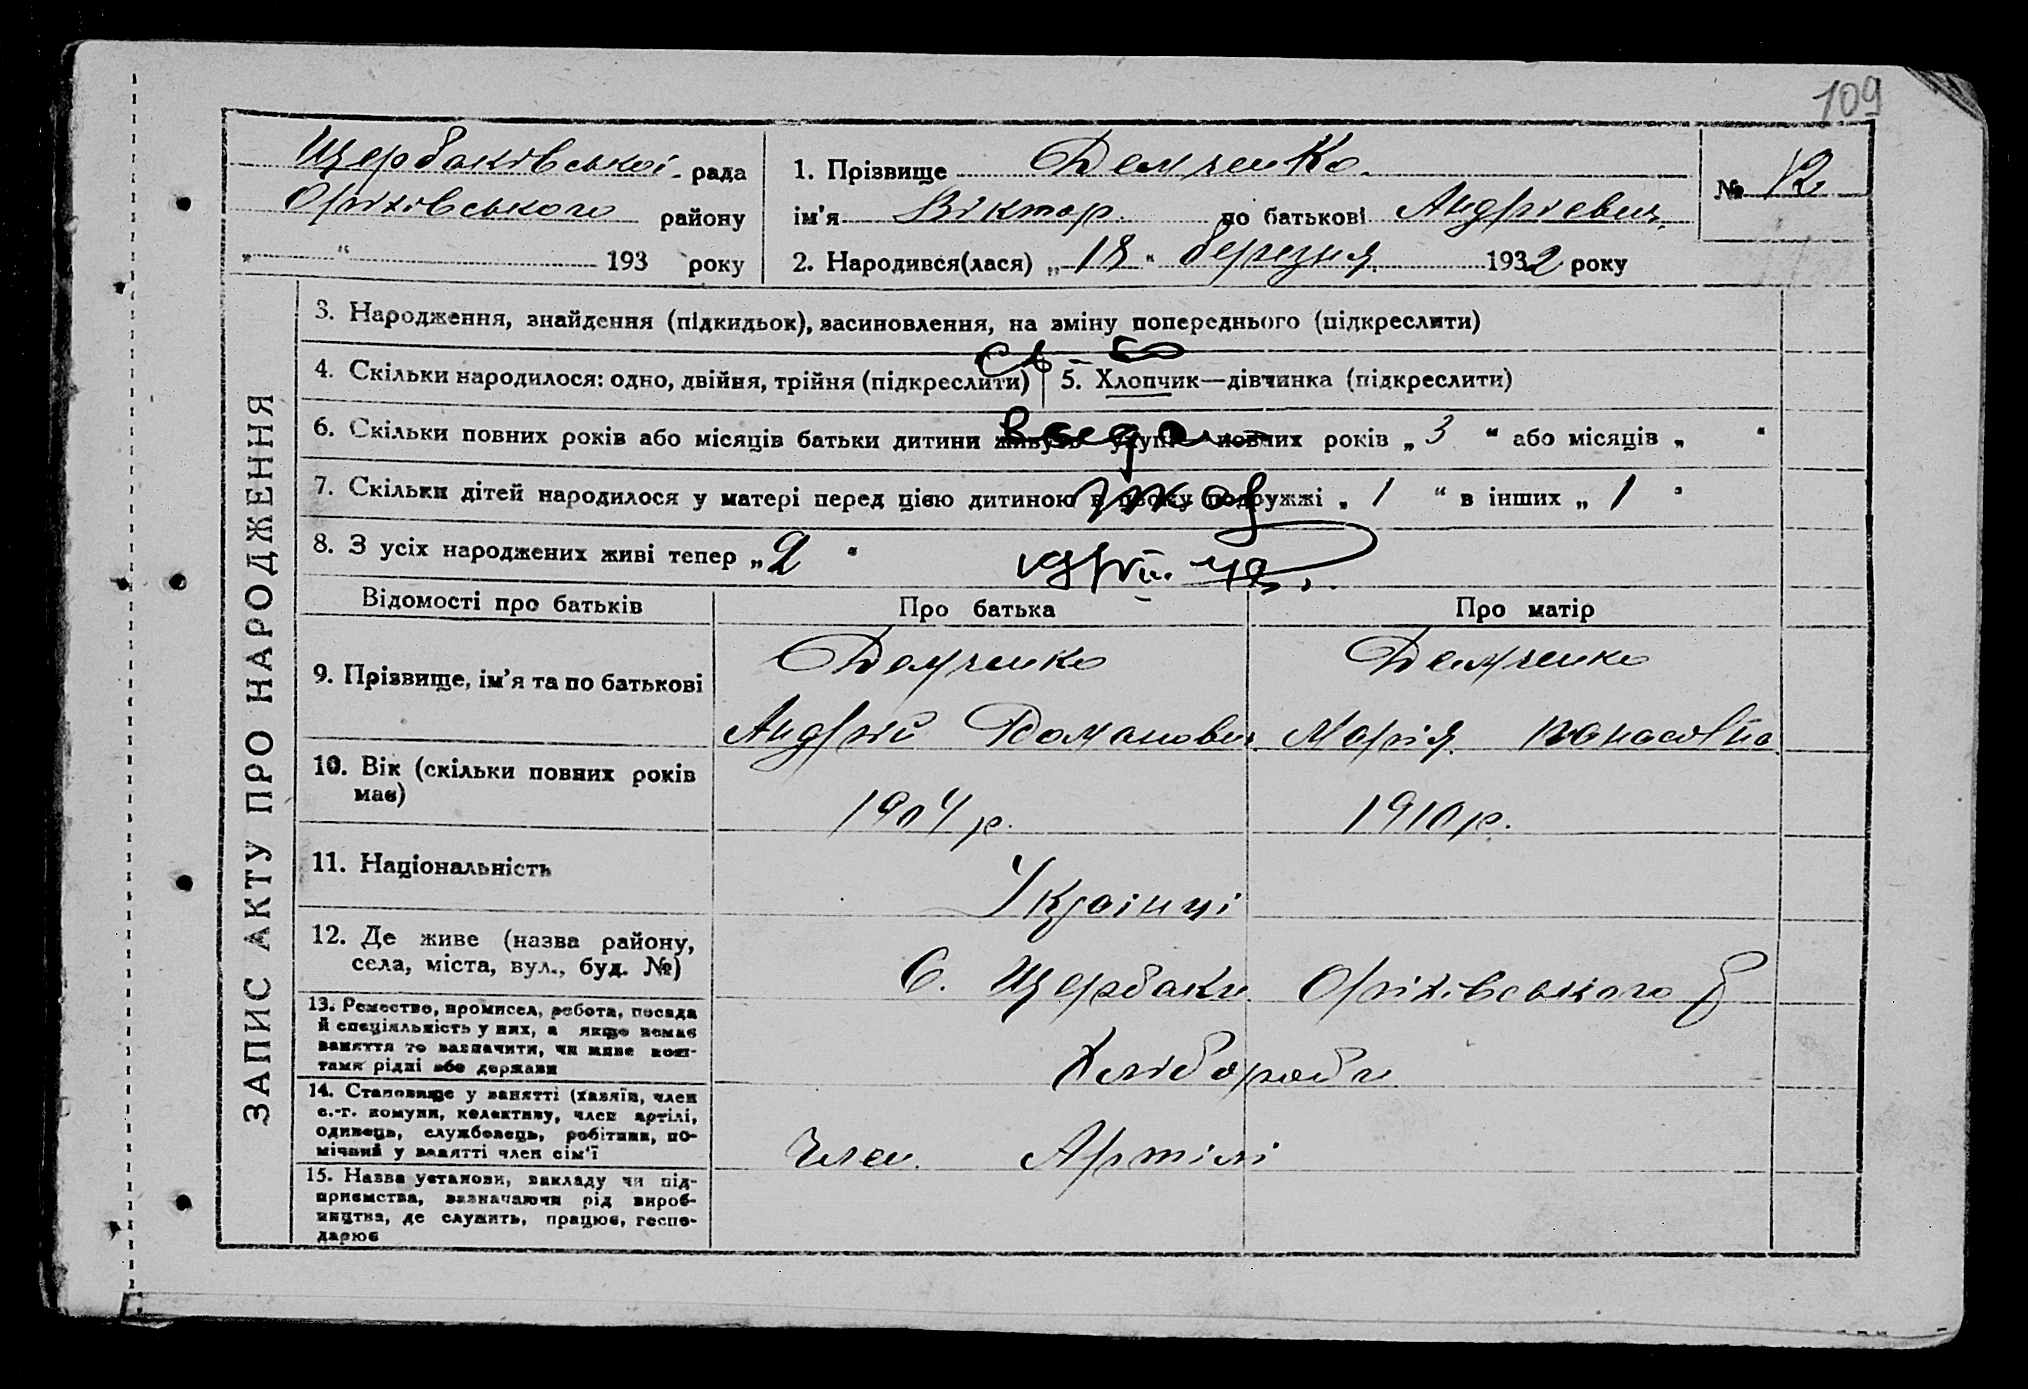 109
Щербаківської рада
Оріхівського району
„ “ 193 року
1. Прізвище Демченко.
ім'я Віктор по батькові Андрієвич
2. Народився(лася) „18“ березня 1932 року
№ 12
ЗАПИС АКТУ ПРО НАРОДЖЕННЯ
3. Народження, знайдення (підкидьок), васиновлення, на зміну попереднього (підкреслити)
4. Скільки народилося: одно, двійня, трійня (підкреслити)
5. Хлопчик—дівчинка (підкреслити)
6. Скільки повних років або місяців батьки дитини живуть укупі повних років „ 3 “ або місяців „ “
7. Скільки дітей народилося у матері перед цією дитиною в цьому подружжі „ 1 “ в інших „ 1 "
8. З усіх народжених живі тепер „ 2 “
Відомості про батьків
Про батька
Про матір
9. Прізвище, ім'я та по батькові
Демченко
Андрій Романович
Демченко
Марія Панасовна
10. Вік (скільки повних років
має)
1904 р.
1910 р.
11. Національність
Українці
12. Де живе (назва району,
села, міста, вул., буд. №)
С. Щербаки Оріхівського р
13. Ремество, промисел, робота, посада
й спеціяльність у них, а якщо немає
заняття то зазначити, чи живе кош-
тами рідні або держави
Хлібороби
14. Становище у занятті (хазяїн, член
с.-г. комуни, колективу, член артілі,
одинець, службовець, робітник, по-
мічний у занятті член сім'ї
Член Артілі
15. Назва установи, закладу чи під-
приємства, зазначаючи рід вироб-
ництва, де служить, працює, госпо-
дарює